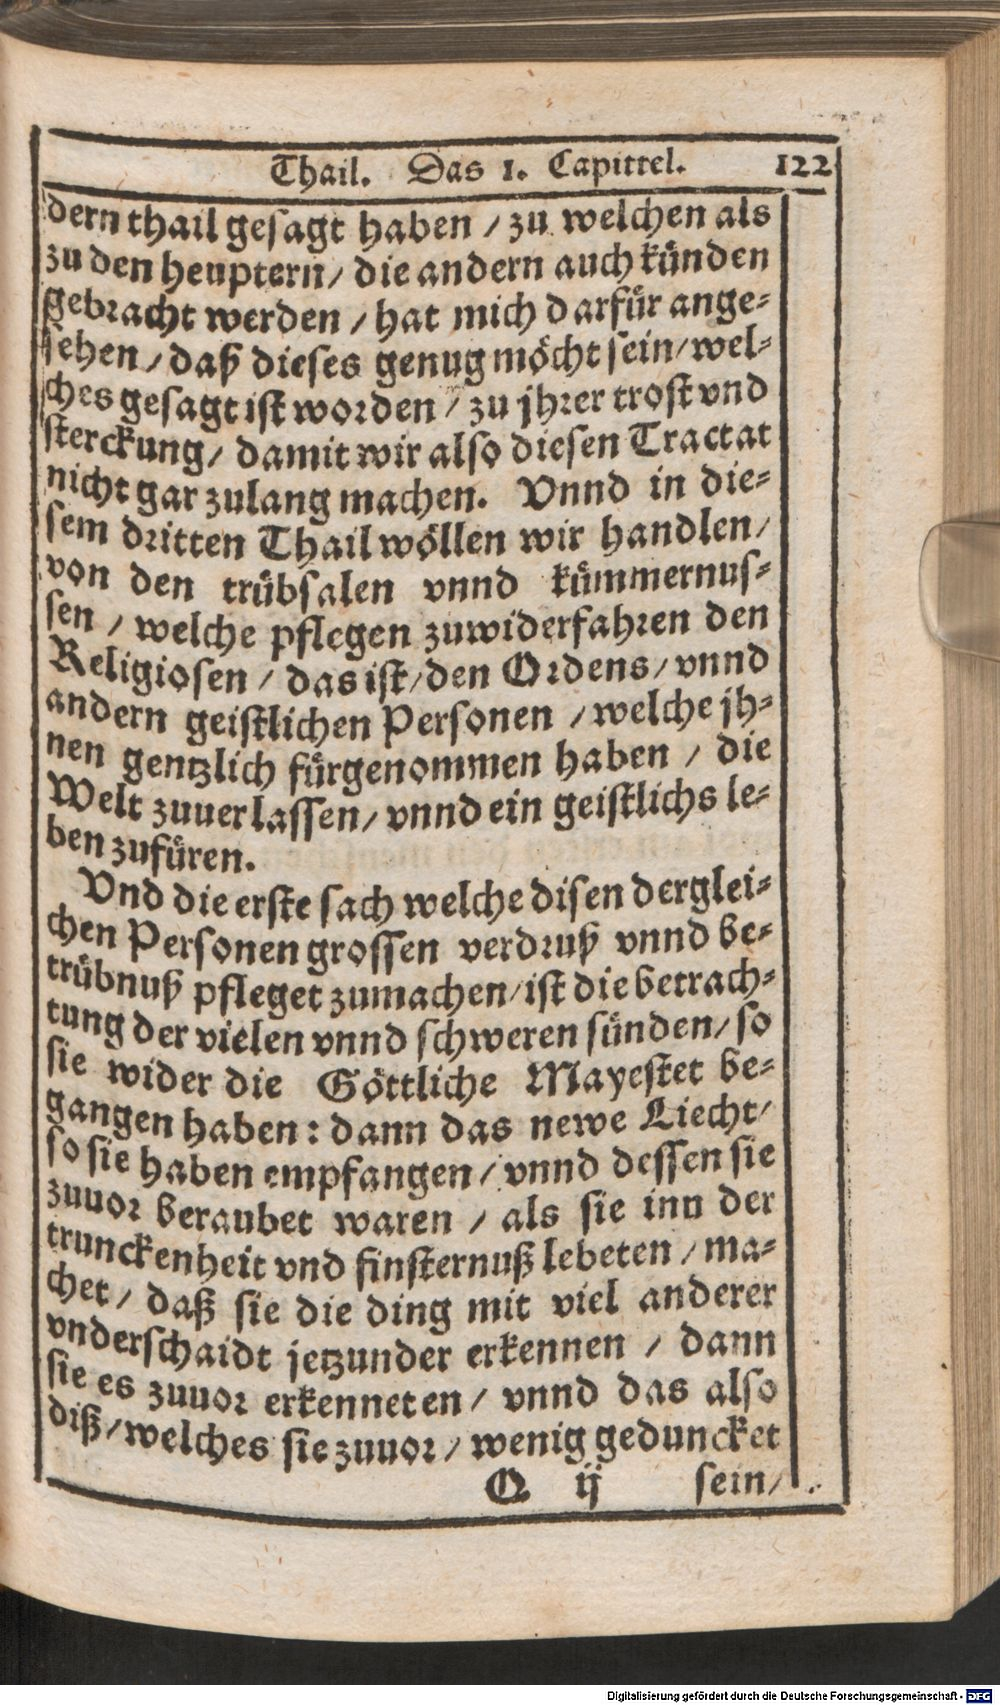 Thail. Das 1. Capittel. 122
dern thail gesagt haben / zu welchen als
zu den heuptern / die andern auch künden
gebracht werden / hat mich darfür ange-
sehen / daß dieses genug möcht sein / wel-
ches gesagt ist worden / zu jhrer trost vnd
sterckung / damit wir also diesen Tractat
nicht gar zulang machen. Vnnd in die-
sem dritten Thail wöllen wir handlen /
von den trübsalen vnnd kümmernus-
sen / welche pflegen zuwiderfahren den
Religiosen / das ist / den Ordens / vnnd
andern geistlichen Personen / welche jh-
nen gentzlich fürgenommen haben / die
Welt zuuerlassen / vnnd ein geistlichs le-
ben zufüren.
Vnd die erste sach welche disen derglei-
chen Personen grossen verdruß vnnd be-
trübnuß pfleget zumachen / ist die betrach-
tung der vielen vnnd schweren sünden / so
sie wider die Göttliche Mayestet be-
gangen haben : dann das newe Liecht /
so sie haben empfangen / vnnd dessen sie
zuuor beraubet waren / als sie inn der
trunckenheit vnd finsternuß lebeten / ma-
chet / daß sie die ding mit viel anderer
vnderschaidt jetzunder erkennen / dann
sie es zuuor erkenneten / vnnd das also
diß / welches sie zuuor / wenig geduncket
Q ij sein /
Digitalisierung gefördert durch die Deutsche Forschungsgemeinschaft - DFG